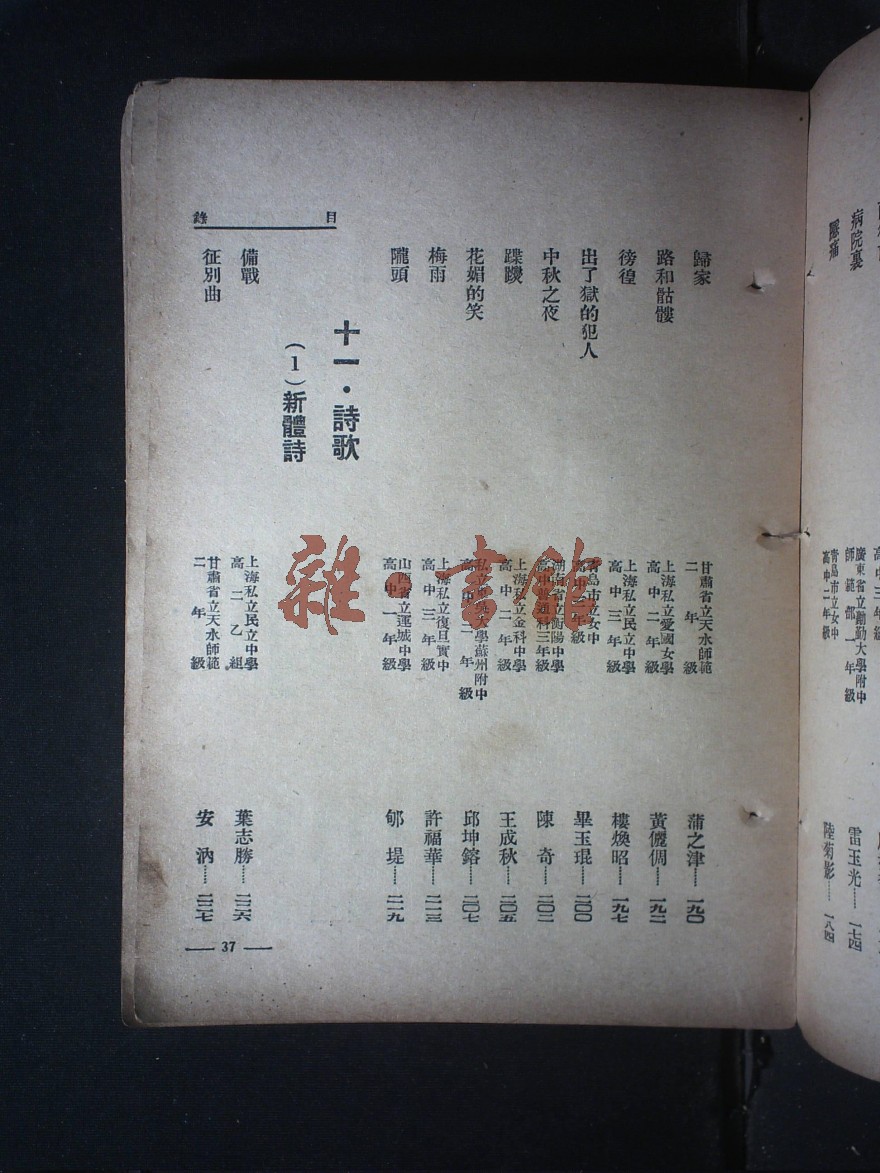 目錄
歸家
甘肅省立天水師範
二年級
蒲之津……一九〇
路和骷髏
上海私立愛國女學
高中二年級
黃儷倜……一九二
徬徨
上海私立民立中學
高中三年級
樓煥昭……一九七
出了獄的犯人
青島市立女中
高中二年級
畢玉琨……二〇〇
中秋之夜
湖南省立衡陽中學
高中普通科三年級
陳奇……二〇二
蹀躞
上海私立金科中學
高中二年級
王成秋……二〇五
花媚的笑
私立東吳大學蘇州附中
高中二年級
邱坤鎔……二〇七
梅雨
上海私立復旦實中
高中三年級
許福華……二一三
隴頭
山西省立運城中學
高中一年級
郇堤……二一九
十一・詩歌
(1)新體詩
備戰
上海私立民立中學
高二乙組
葉志勝……二二六
征別曲
甘肅省立天水師範
二年級
安汭……二二七
37
病院裏
廣東省立勷勤大學附中
師範部一年級
雷玉光……一七四
青島市立女中
高中二年級
陸菊影……一八四
雜·書館